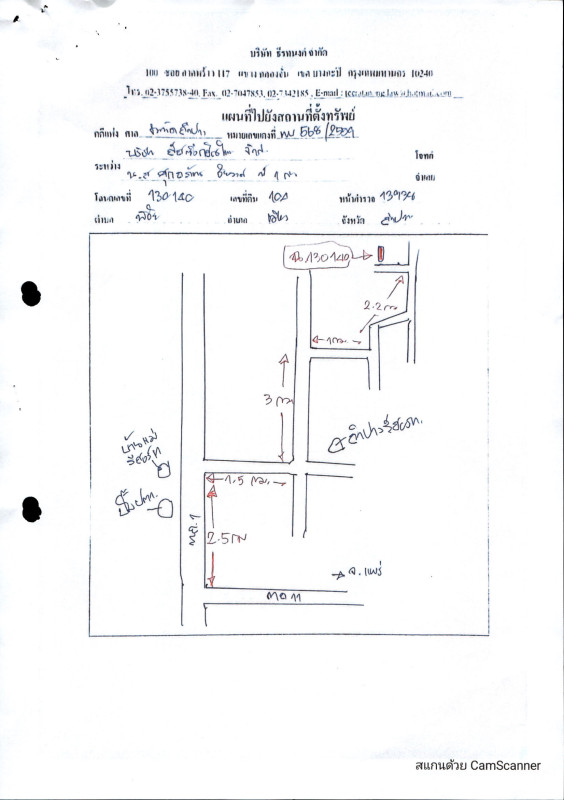 บริษัท ธีรทนงค์ จำกัด
100 ซอย ลาดพร้าว 117 แขวง คลองจั่น เขต บางกะปิ กรุงเทพมหานคร 10240
โทร. 02-3755738-40, Fax. 02-7047853, 02-7342185, E-mail :
แผนที่ไปยังสถานที่ตั้งทรัพย์
คดีแพ่ง ศาล จังหวัดลำปาง หมายเลขแดงที่ ผบ 568/2559
บริษัท จำกัด โจทก์
ระหว่าง
น.ส. ที่ 1 จำเลย
โฉนดเลขที่ 130140 เลขที่ดิน 104 หน้าสำรวจ 13938
ตำบล พิชัย อำเภอ เมือง จังหวัด ลำปาง
ฉ.130140
2.2 กม
1 กม.
3 กม
ลำปางรีสอร์ท.
บ้านแม่
รีสอร์ท
1.5 กม.
ปั๊ม ปตท.
ทล.1
2.5 กม
จ.แพร่
ทล 11
สแกนด้วย CamScanner